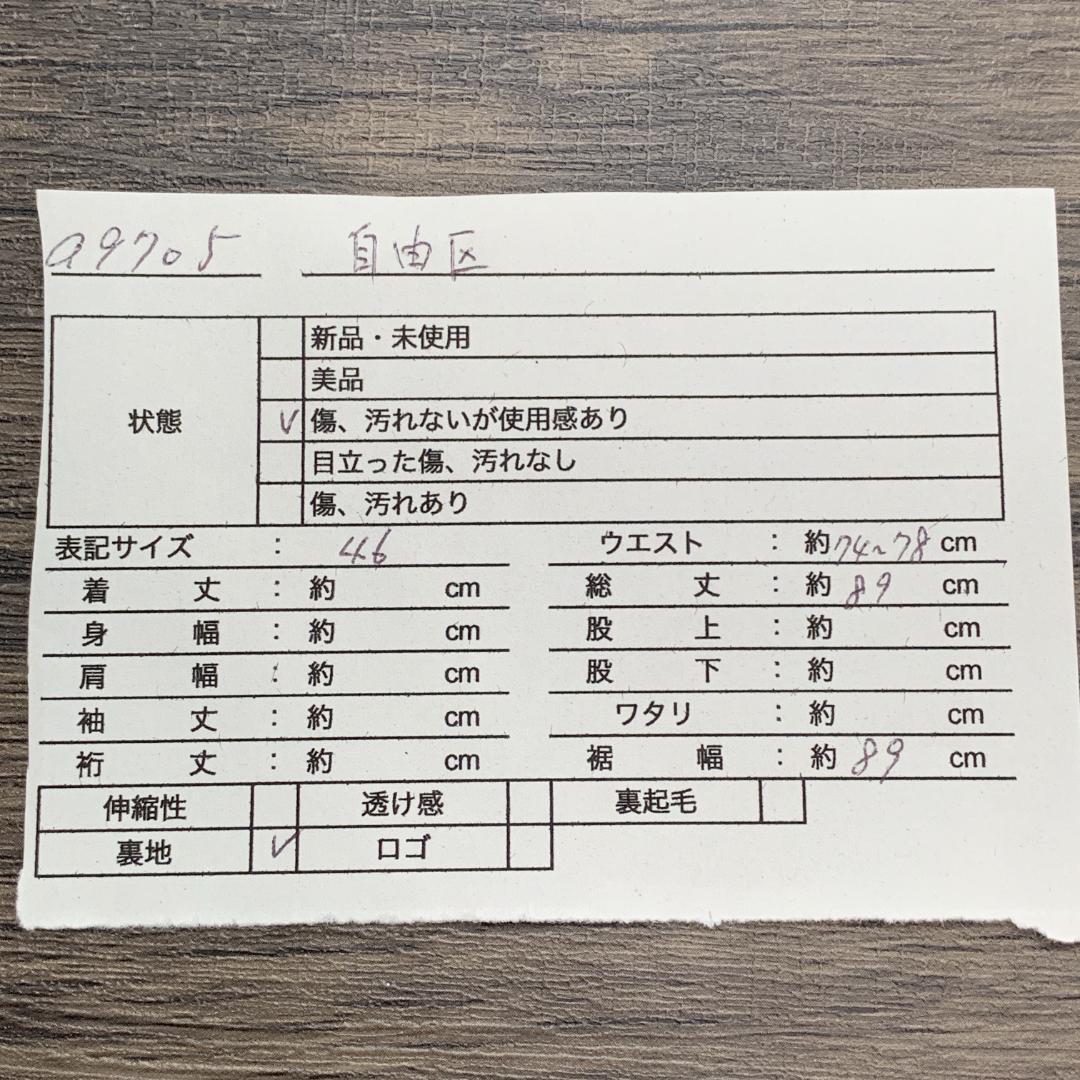 a9705 自由区
状態
新品・未使用
美品
✓ 傷、汚れないが使用感あり
目立った傷、汚れなし
傷、汚れあり
表記サイズ : 46 ウエスト : 約74~78cm
着丈 : 約 cm 総丈 : 約89cm
身幅 : 約 cm 股上 : 約 cm
肩幅 : 約 cm 股下 : 約 cm
袖丈 : 約 cm ワタリ : 約 cm
裄丈 : 約 cm 裾幅 : 約89cm
伸縮性 透け感 裏起毛
裏地 ✓ ロゴ